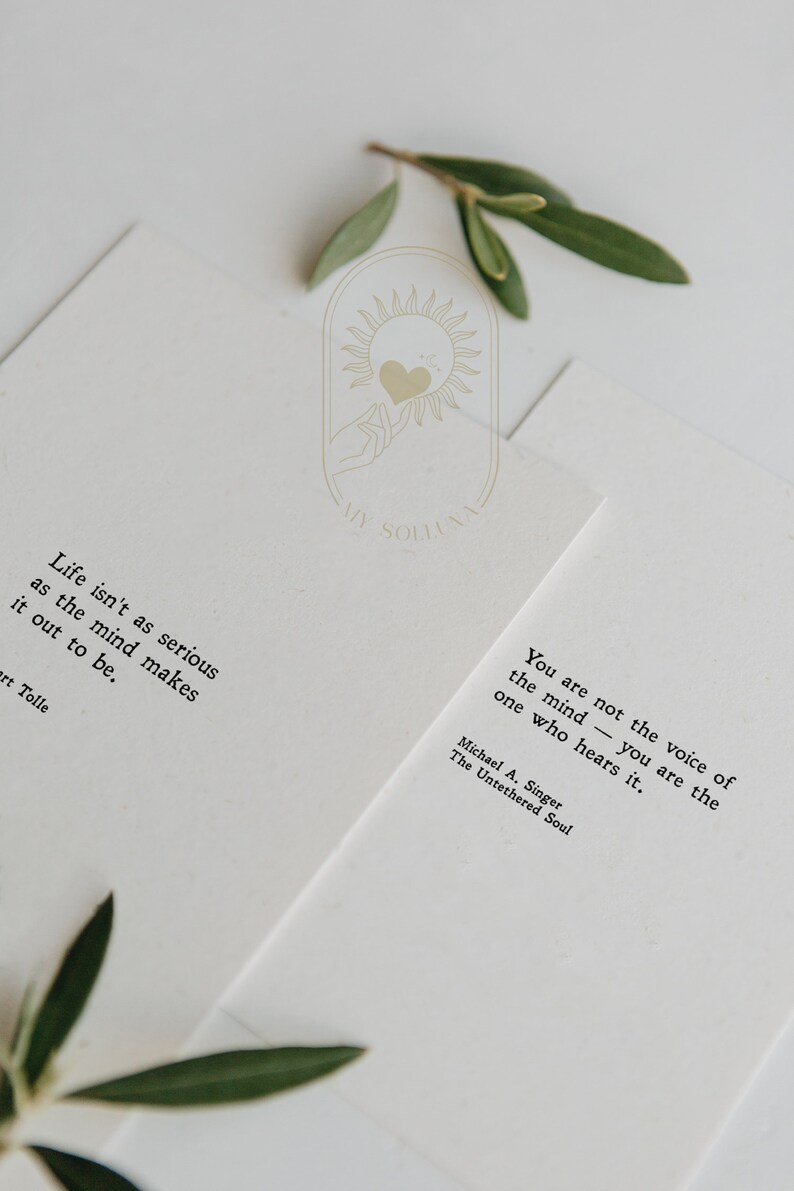 MY SOLLUNA
Life isn't as serious
as the mind makes
it out to be.
Tolle
You are not the voice of
the mind — you are the
one who hears it.
Michael A. Singer
The Untethered Soul